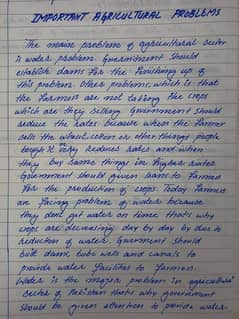 IMPORTANT AGRICULTURAL PROBLEMS
The major problem of agricultural sector
is water problem. Government should
establish dams for the finishing up of
this problem. Other problems, which is that
the farmers are not taking the crops
which are they selling. Government should
reduce the rates because when the farmer
sells the wheat, cotton or other things people
buys it very reduces rates and when
they buy same things in higher rates
Government should given loans to farmers
for the production of crops. Today farmers
are facing problem of water because
they don't get water on time thats why
crops are decreasing day by day be due to
reduction of water. Government should
built dams, tube wells and canals to
provide water facilites to farmers.
Water is the major problem in agriculture
sector of Pakistan thats why government
should be given attention to provide water